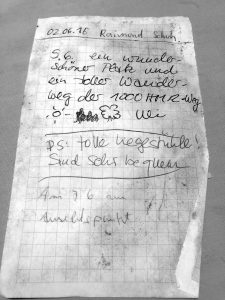 02.06.16 Raimund Schuh
5.6. ein wunder
schöner Platz und
ein toller Wander-
weg der 1000 HM R-Weg
PS: tolle Liegestühle!
Sind sehr bequem
Am 7.6 am
Aussichtspunkt